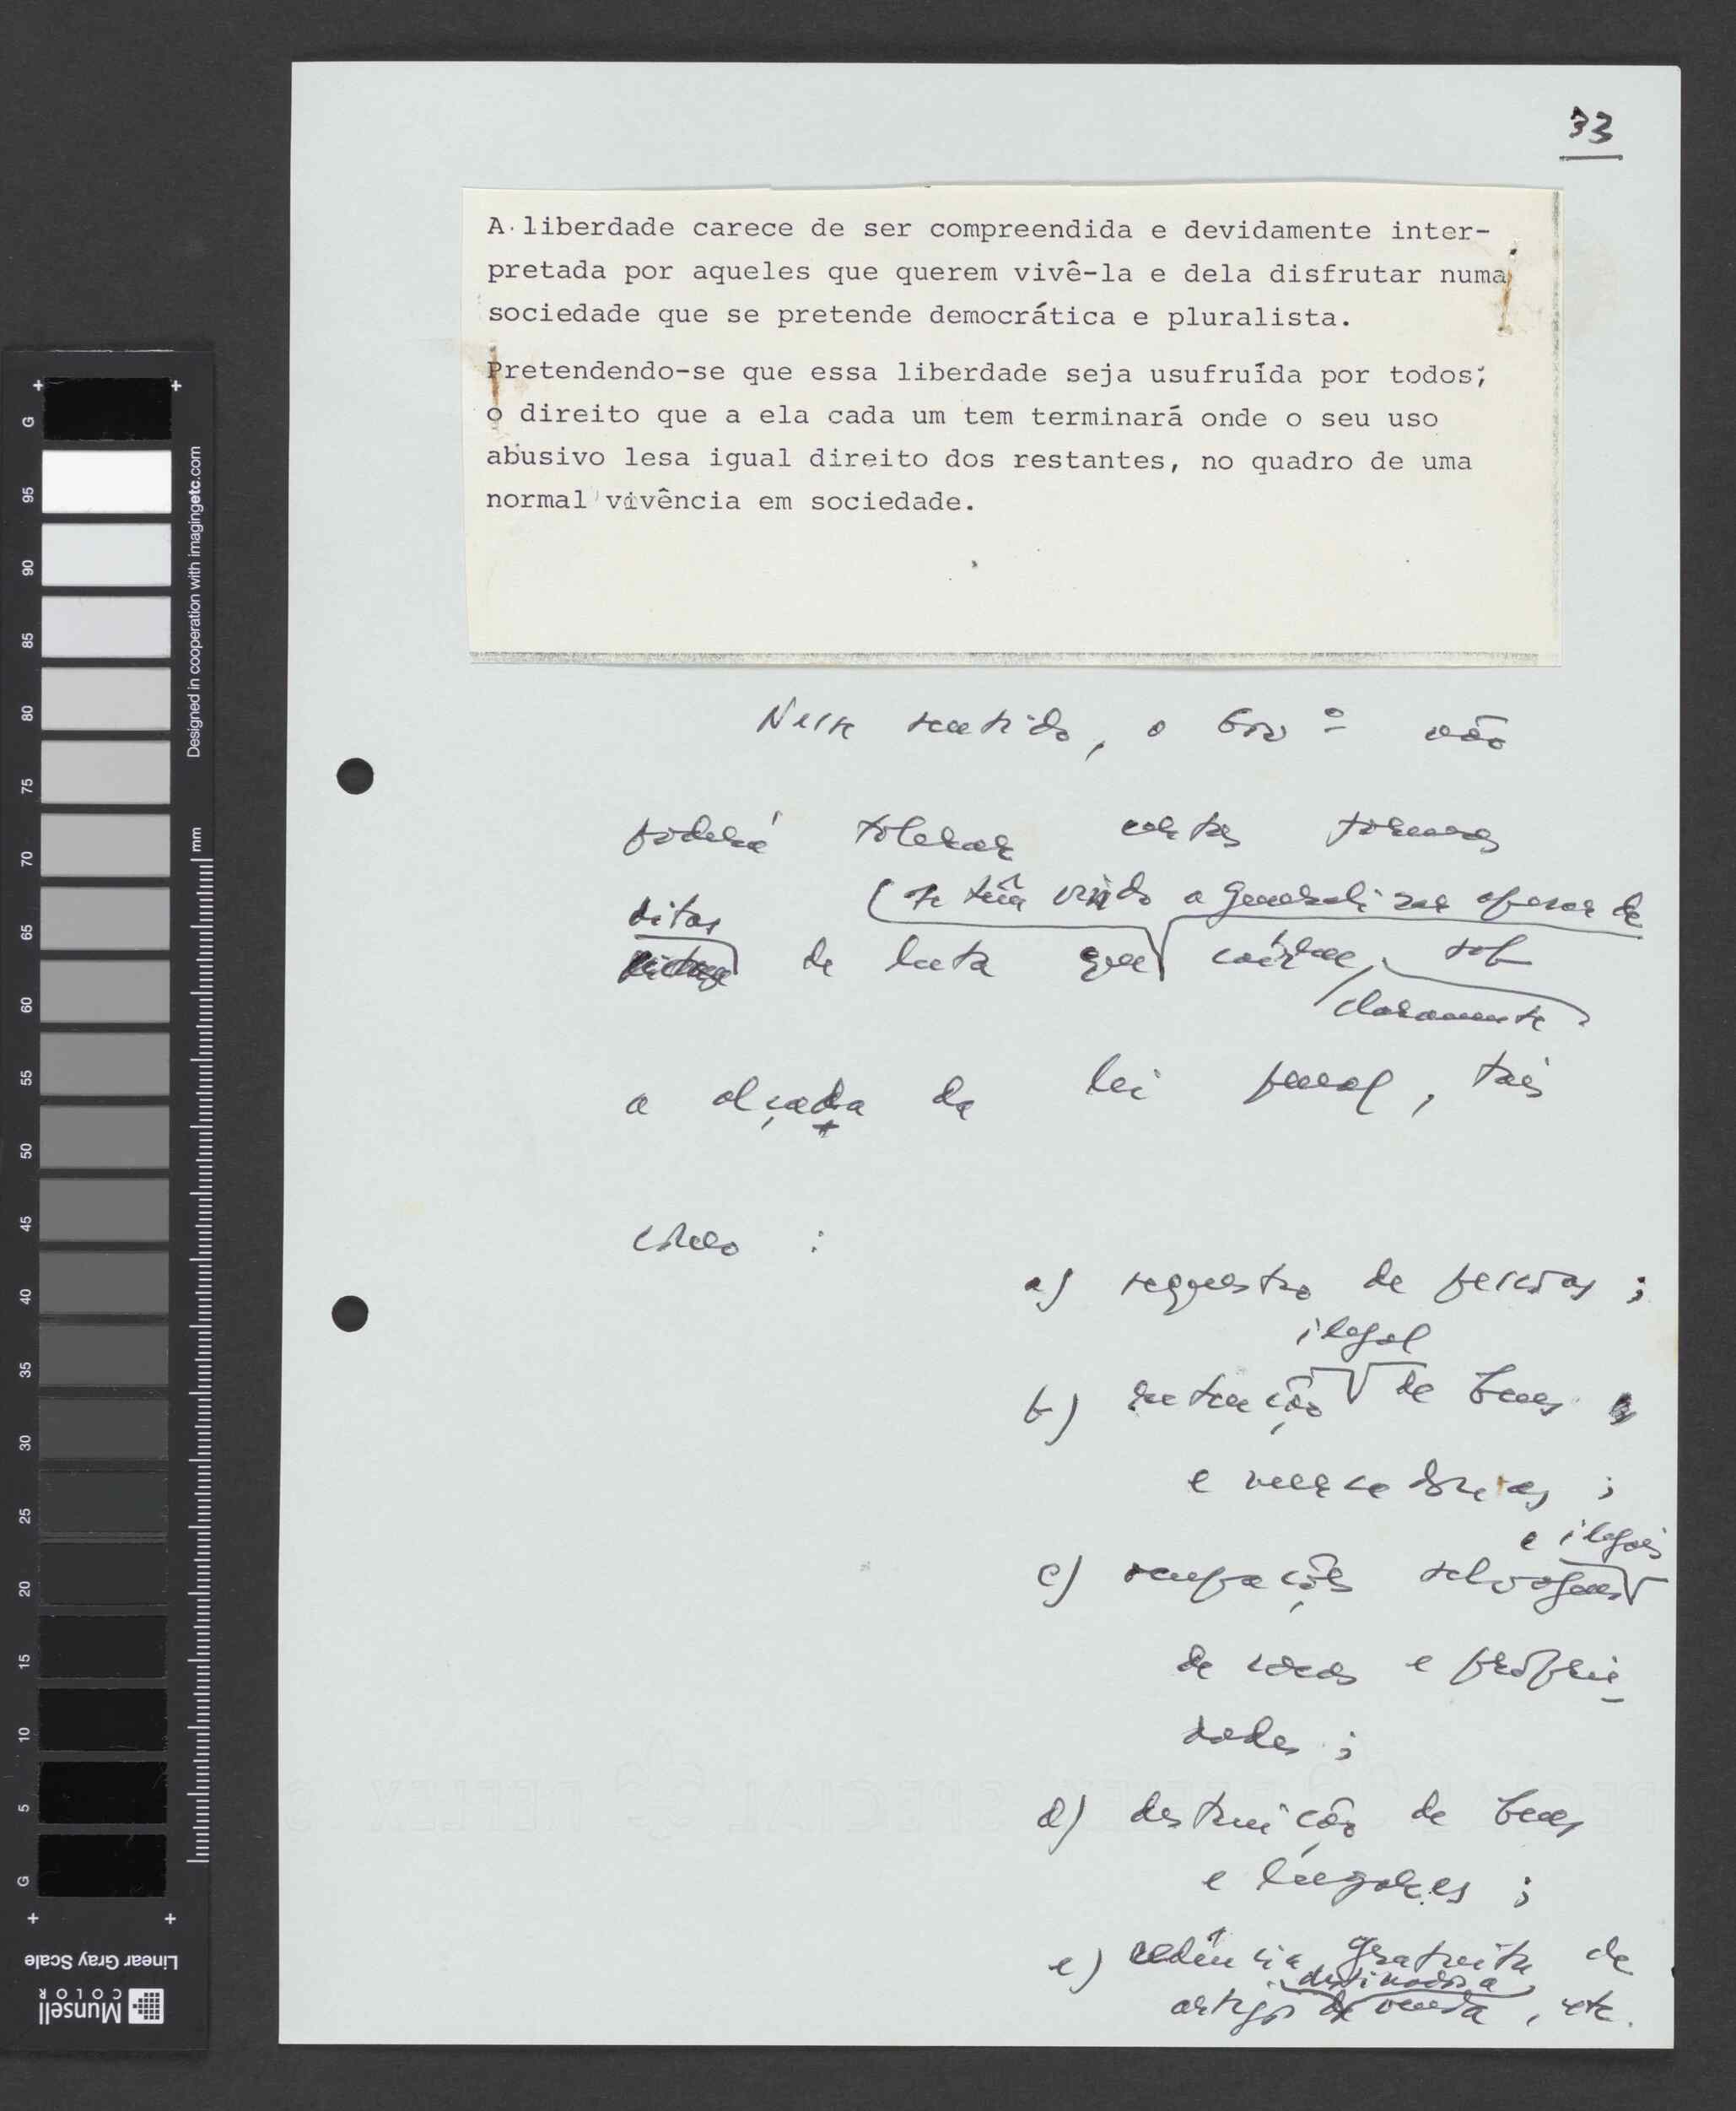 33
A liberdade carece de ser compreendida e devidamente inter-
pretada por aqueles que querem vivê-la e dela disfrutar numa
sociedade que se pretende democrática e pluralista.
Pretendendo-se que essa liberdade seja usufruída por todos;
o direito que a ela cada um tem terminará onde o seu uso
abusivo lesa igual direito dos restantes, no quadro de uma
normal vivência em sociedade.
Nesse sentido, o Govº não
poderá tolerar certas formas
ditas
(se têm vindo a generalizar apesar de
de luta que caírem, sob
claramente
a alçada da lei penal, tais
como :
a) sequestro de pessoas ;
ilegal
b) retenção de bens
e mercadorias ;
e ilegais
c) ocupações selvagens
de casas e proprie-
dades ;
d) destruição de bens
e lugares ;
e) cedência gratuita de
destinados a
artigos de venda, etc.
Designed in cooperation with imagingetc.com
mm
G 95 90 85 80 75 70 65 60 55 50 45 40 35 30 25 20 15 10 5 G
Linear Gray Scale
Munsell
COLOR